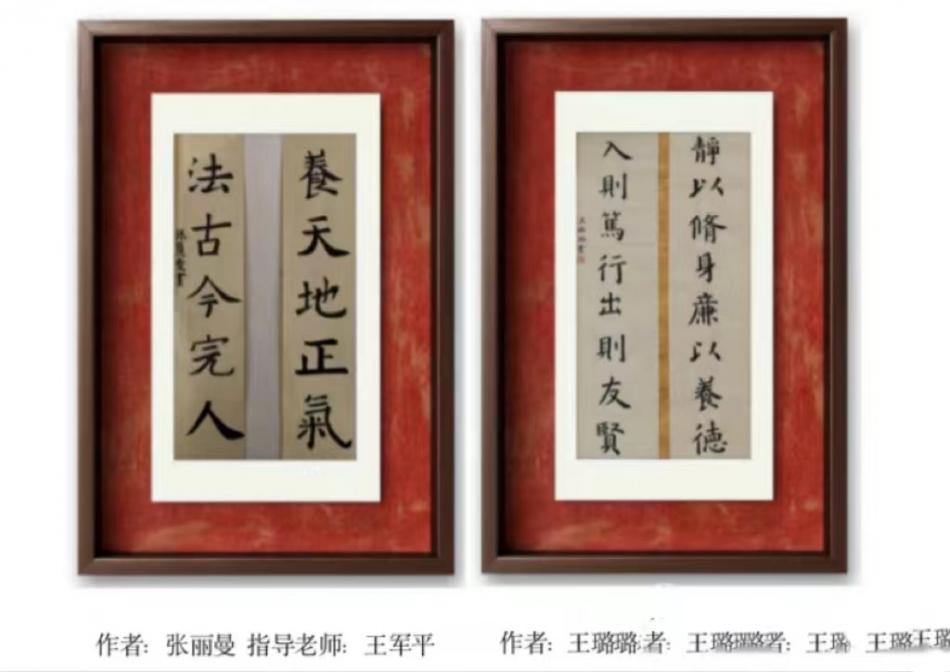 養天地正氣
法古今完人
靜以脩身廉以養德
入則篤行出則友賢
作者：张丽曼 指导老师：王军平
作者：王璐璐者：王璐璐璐者：王璐 王璐王璐